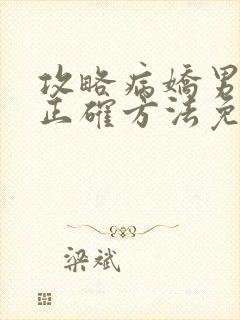 攻略病嬌男
正確方法免
梁斌